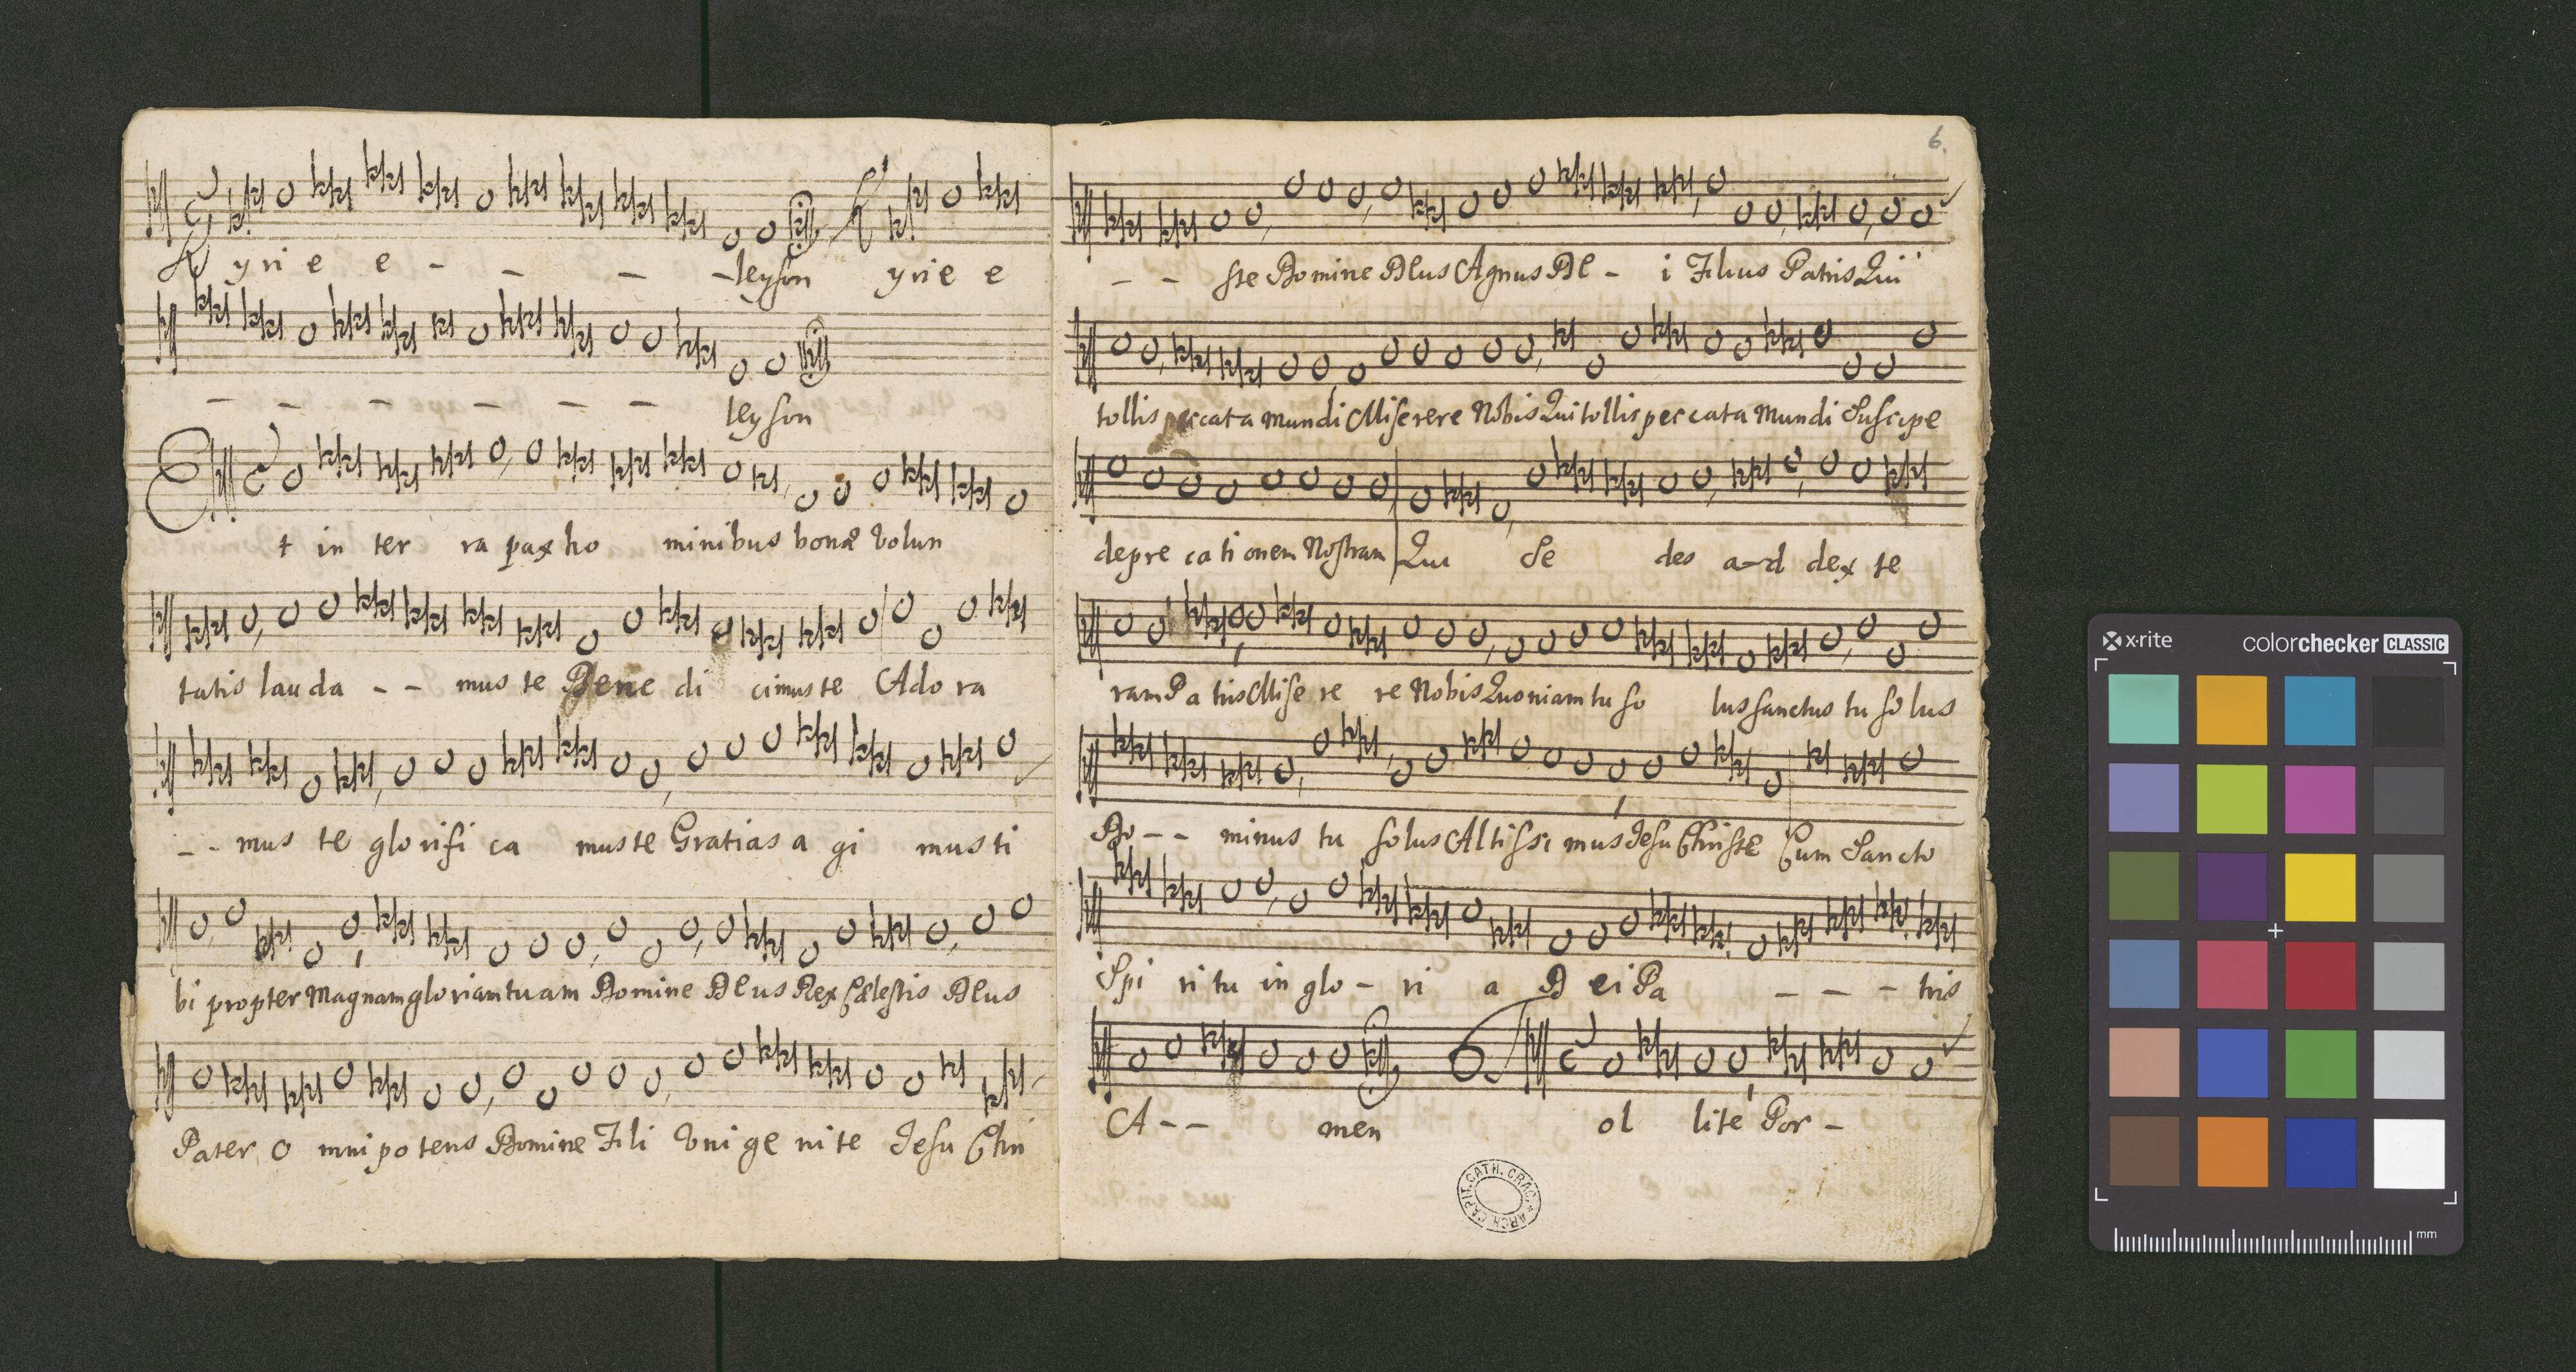 Kyrie e - - - - leyson yrie e
- - - - - - leyson
Et in ter ra pax ho minibus bonæ volun
tatis lau da - - mus te Bene di cimus te Ado ra
- - mus te glorifi ca mus te Gratias a gi mus ti
bi propter Magnam gloriam tuam Domine Deus Rex Cælestis Deus
Pater O mnipotens Domine Fili Vnige nite Jesu Chri
6.
- - ste Domine Deus Agnus De - i Filius Patris Qui
tollis peccata mundi Miserere Nobis Qui tollis peccata Mundi Suscipe
depre cationem Nostram Qui Se des a-d dex te
ram Patris Mise re re Nobis Quoniam tu so lus sanctus tu solus
Do - - minus tu solus Altissi mus Jesu Christe Cum Sancto
Spi ri tu in glo - ri a D ei Pa - - - tris
A - - men ol lite Por -
ARCH. CAPIT. CATH. CRAC.
x-rite
colorchecker CLASSIC
mm